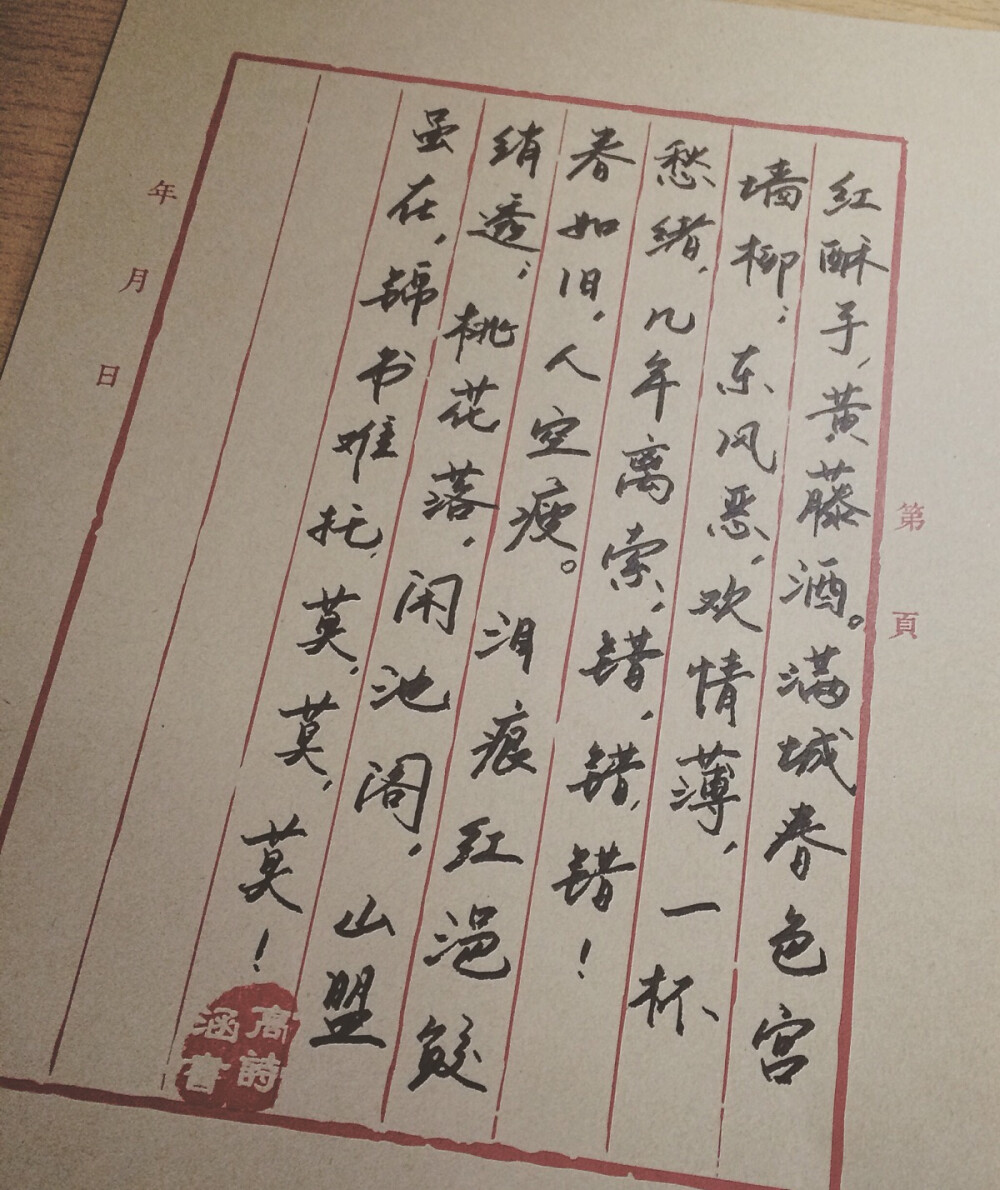 第 頁
红酥手，黄藤酒。满城春色宫
墙柳；东风恶，欢情薄，一杯
愁绪，几年离索，错，错，错！
春如旧，人空瘦。泪痕红浥鲛
绡透；桃花落，闲池阁，山盟
虽在，锦书难托，莫，莫，莫！
高詩
涵書
年 月 日